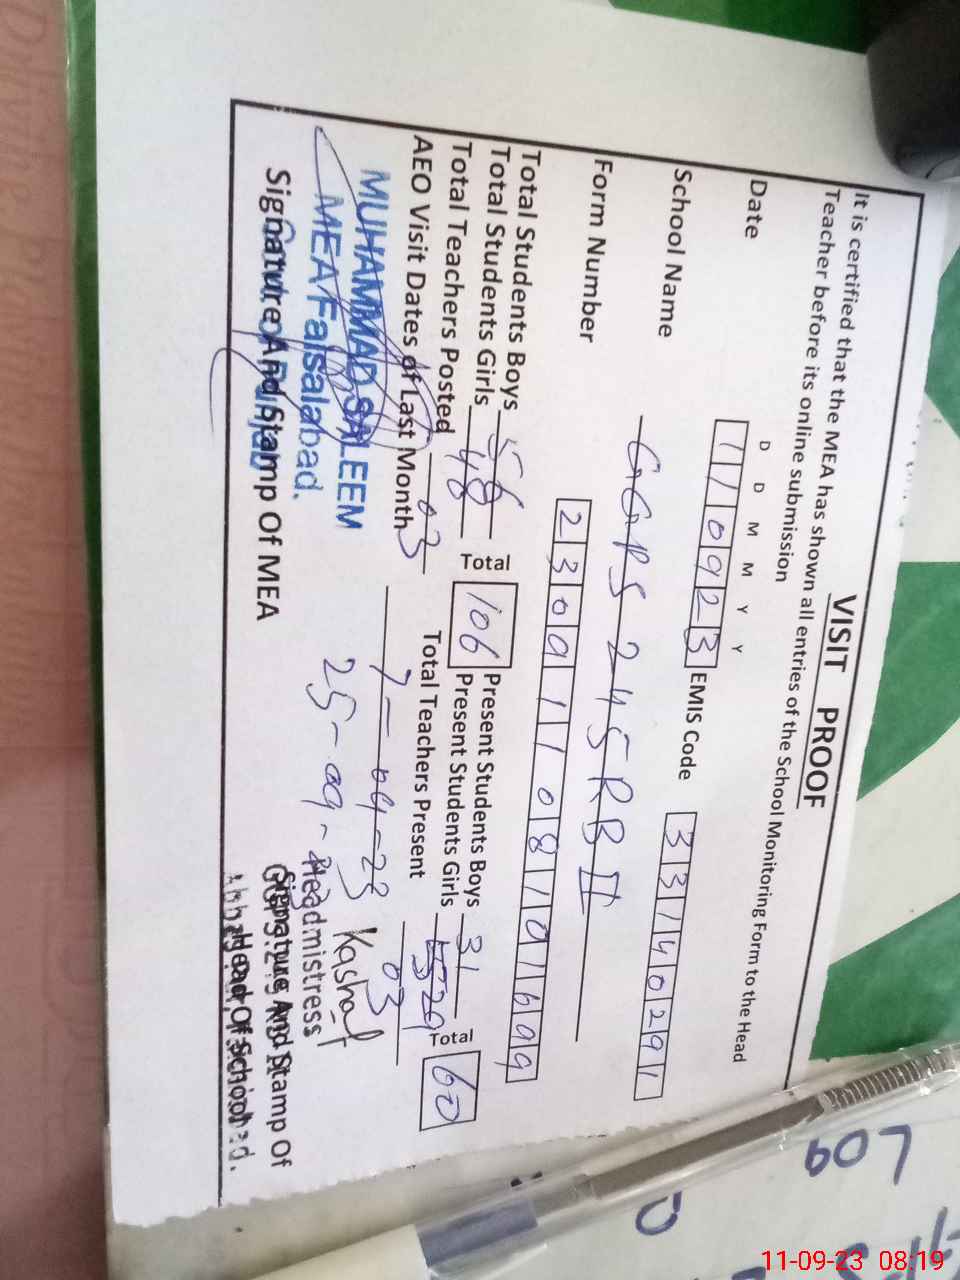 VISIT PROOF
It is certified that the MEA has shown all entries of the School Monitoring Form to the Head
Teacher before its online submission
D D M M Y Y
Date 110923 EMIS Code 33140291
School Name GGPS 245 RB II
Form Number 23091108101699
Total Students Boys 56 Present Students Boys 31
Total Students Girls 48 Total 106 Present Students Girls 29 Total 60
Total Teachers Posted 03 Total Teachers Present 03
AEO Visit Dates of Last Month 7-09-23
25-09- Kashaf
MUHAMMAD SALEEM
MEA Faisalabad.
Headmistress
Signature And Stamp Of MEA
Signature And Stamp Of
Head Of School
L09
11-09-23 08:19